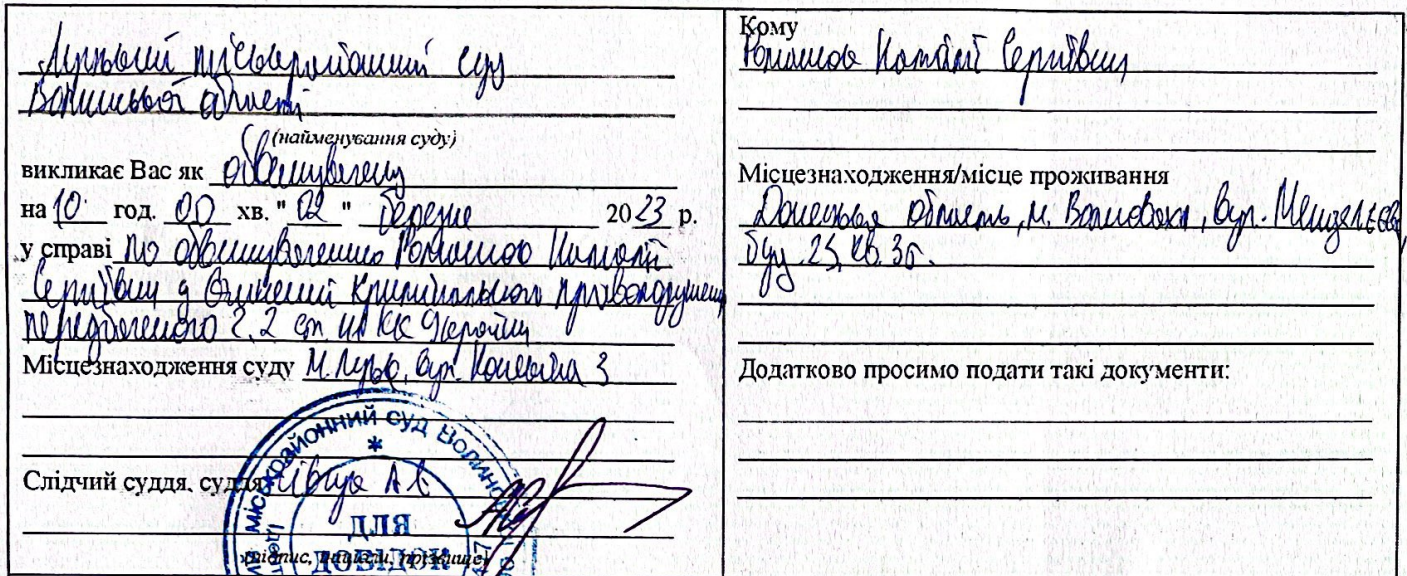 Луцький міськрайонний суд
Волинської області
(найменування суду)
викликає Вас як обвинувачену
на 10 год. 00 хв. "02" березня 2023 р.
у справі по обвинуваченню
Сергіївни у вчиненні кримінального правопорушення
передбаченого ч. 2 ст. КК України
Місцезнаходження суду м. Луцьк, вул. Конякіна 3
Слідчий суддя, суддя А.
МІСЬКРАЙОННИЙ СУД ВОЛИНС
*
ДЛЯ
ДОВІДОК
Кому
Сергіївни
Місцезнаходження/місце проживання
Донецька область, м. Волноваха, вул.
буд. 23, кв. 35.
Додатково просимо подати такі документи: